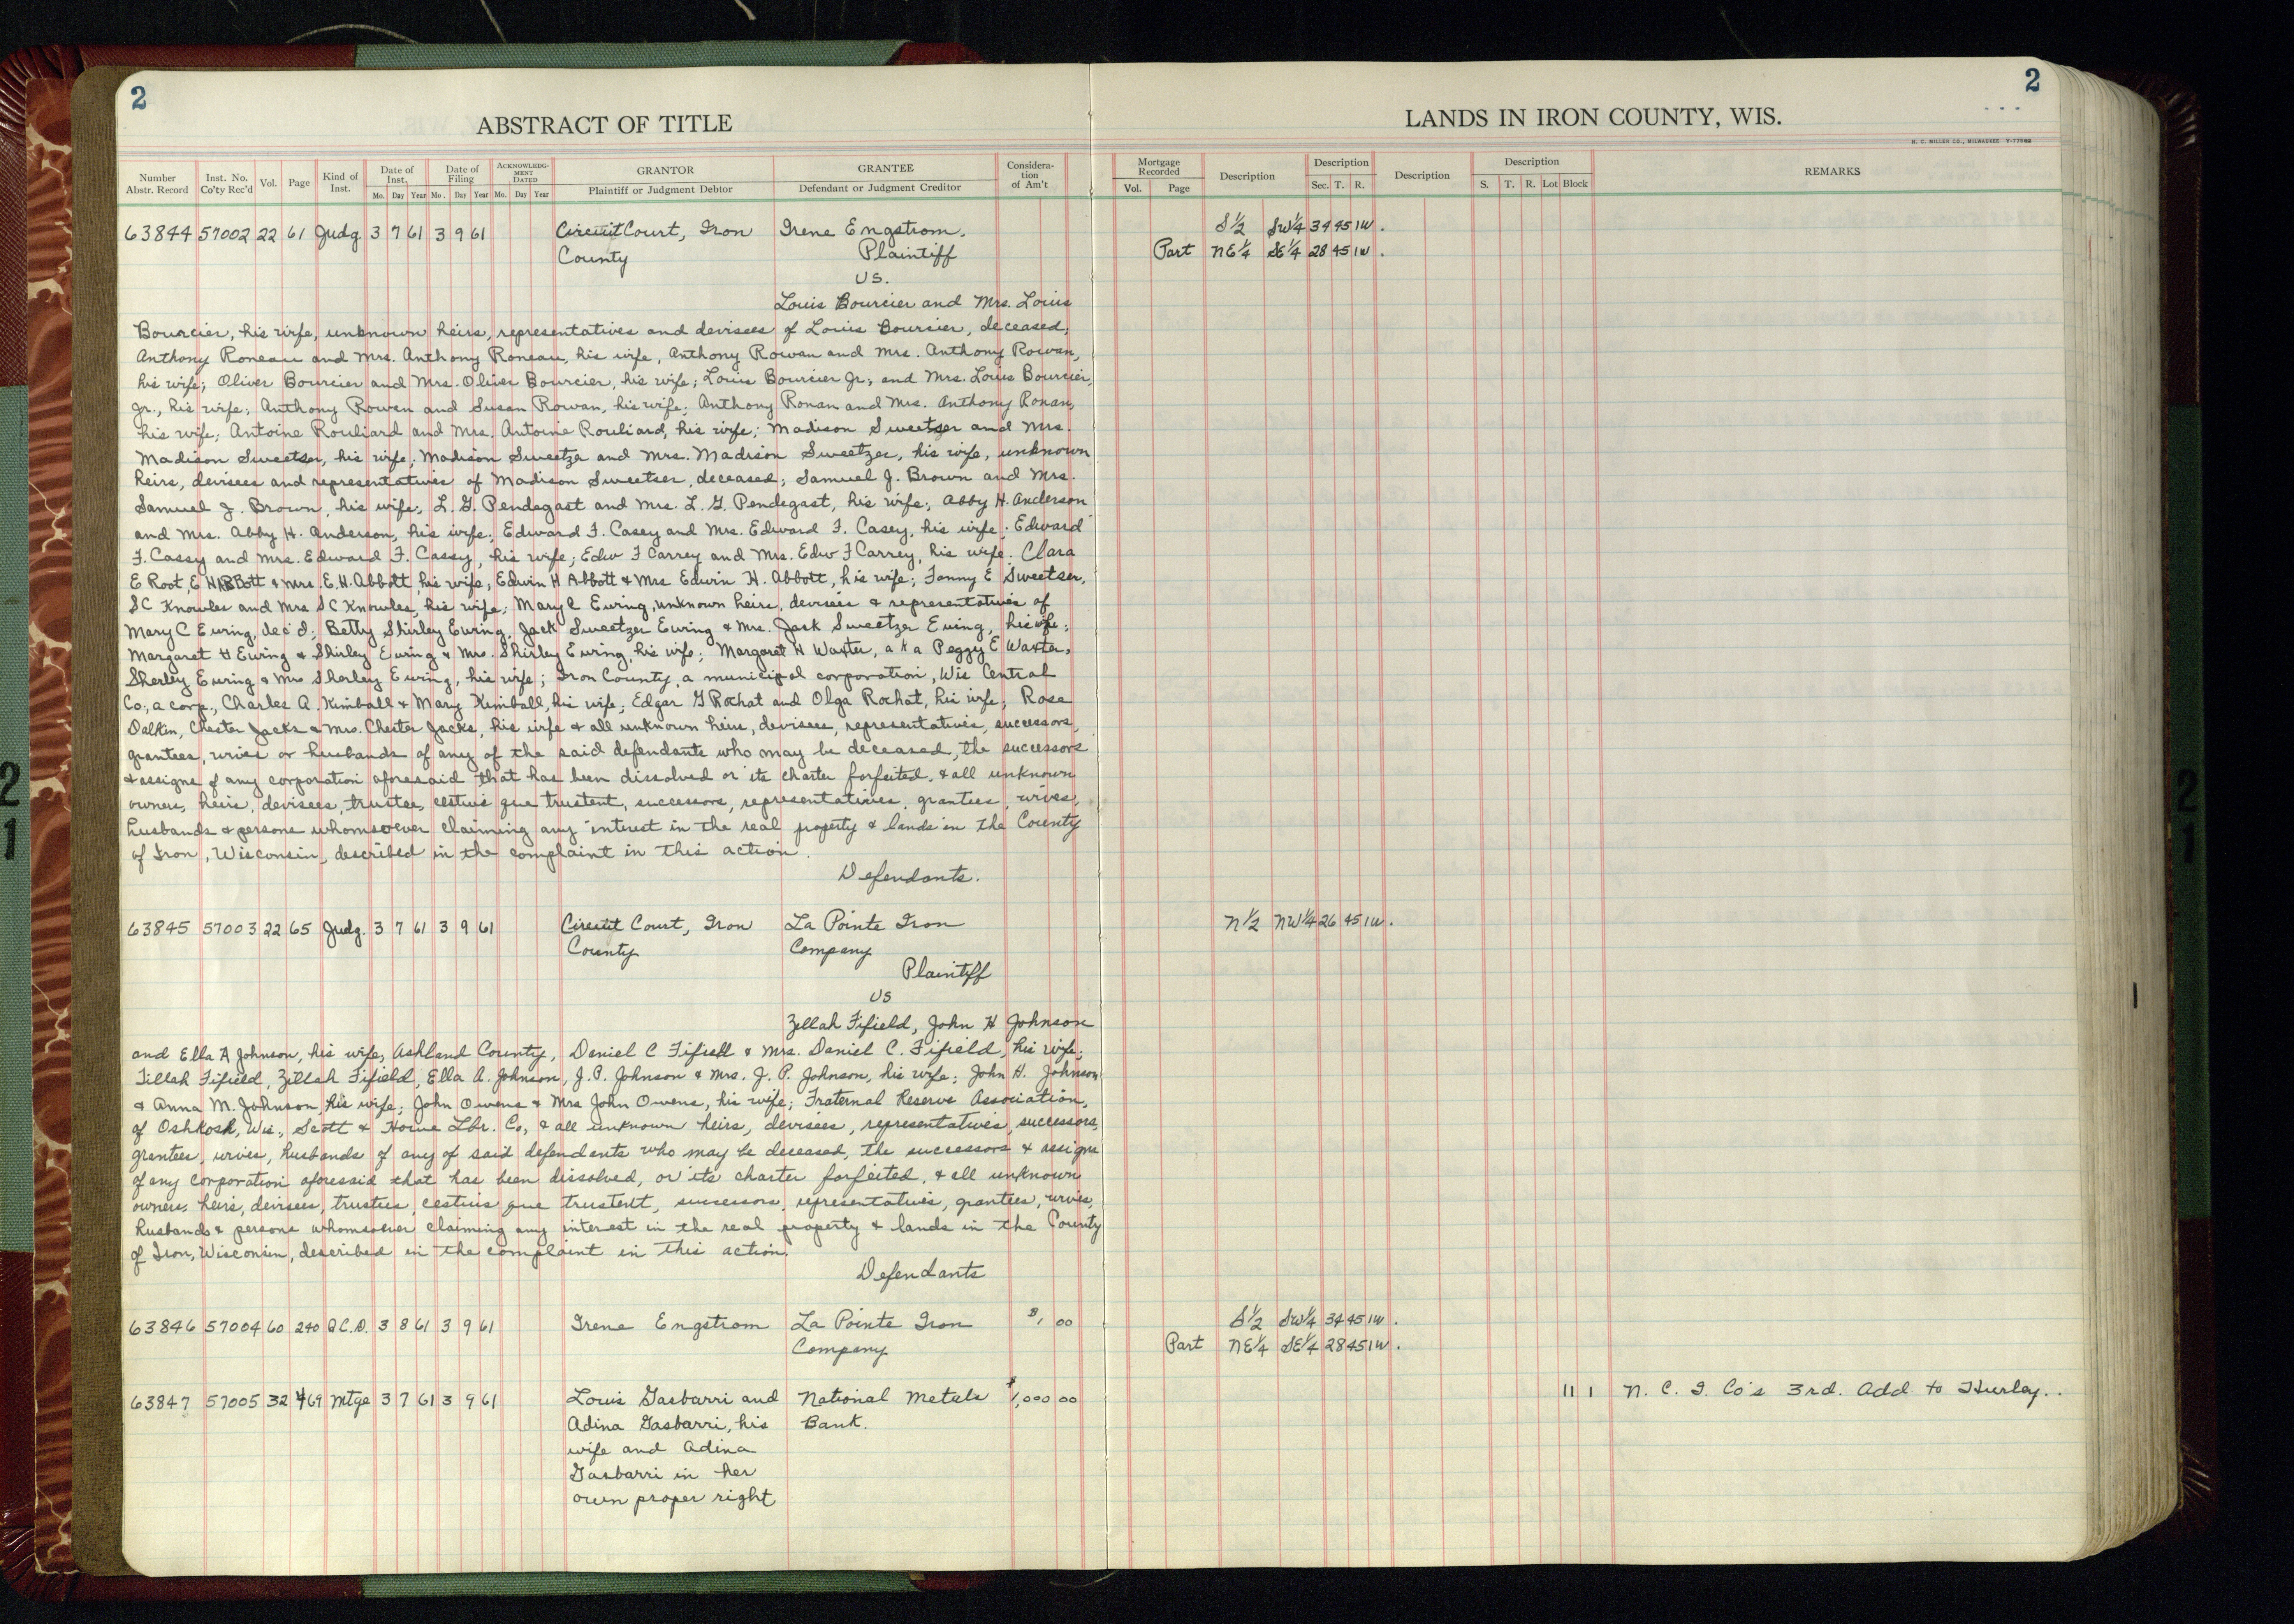 2
ABSTRACT OF TITLE
Number Abstr. Record
Inst. No. Co'ty Rec'd
Vol.
Page
Kind of Inst.
Date of Inst.
Mo. Day Year
Date of Filing
Mo. Day Year
ACKNOWLEDGMENT DATED
Mo. Day Year
GRANTOR
Plaintiff or Judgment Debtor
GRANTEE
Defendant or Judgment Creditor
Consideration of Am't
63844 57002 22 61 Judg 3 7 61 3 9 61 Circuit Court, Iron Irene Engstrom,
County Plaintiff
vs.
Louis Bourcier and Mrs. Louis
Bourcier, his wife, unknown heirs, representatives and devisees of Louis Bourcier, deceased;
Anthony Roneau and Mrs. Anthony Roneau, his wife, Anthony Rowan and Mrs. Anthony Rowan,
his wife; Oliver Bourcier and Mrs. Oliver Bourcier, his wife; Louis Bourcier Jr., and Mrs. Louis Bourcier,
Jr., his wife; Anthony Rowen and Susan Rowan, his wife; Anthony Ronan and Mrs. Anthony Ronan,
his wife; Antoine Rouliard and Mrs. Antoine Rouliard, his wife; Madison Sweetser and Mrs.
Madison Sweetser, his wife; Madison Sweetzer and Mrs. Madison Sweetzer, his wife, unknown
heirs, devisees and representatives of Madison Sweetser, deceased; Samuel J. Brown and Mrs.
Samuel J. Brown, his wife; L. G. Pendegast and Mrs. L. G. Pendegast, his wife; Abby H. Anderson
and Mrs. Abby H. Anderson, his wife; Edward F. Casey and Mrs. Edward F. Casey, his wife; Edward
F. Cassy and Mrs. Edward F. Cassy, his wife; Edw F Carrey and Mrs. Edw F Carrey, his wife. Clara
E Root, E H Abbott & Mrs. E. H. Abbott, his wife; Edwin H Abbott & Mrs Edwin H. Abbott, his wife; Fanny E Sweetser,
SC Knowles and Mrs SC Knowles, his wife; Mary C Ewing, unknown heirs, devisees & representatives of
Mary C Ewing, dec'd; Betty Shirley Ewing, Jack Sweetzer Ewing & Mrs. Jack Sweetzer Ewing, his wife;
Margaret H Ewing & Shirley Ewing & Mrs. Shirley Ewing, his wife; Margaret H Waxter, a k a Peggy E Waxter,
Sherley Ewing & Mrs Sherley Ewing, his wife; Iron County, a municipal corporation, Wis Central
Co., a corp., Charles A. Kimball & Mary Kimball, his wife; Edgar G Rochat and Olga Rochat, his wife; Rose
Dalkin, Chester Jacks & Mrs. Chester Jacks, his wife & all unknown heirs, devisees, representatives, successors,
grantees, wives or husbands of any of the said defendants who may be deceased, the successors
& assigns of any corporation aforesaid that has been dissolved or its charter forfeited, & all unknown
owners, heirs, devisees, trustees, cestuis que trustent, successors, representatives, grantees, wives,
husbands & persons whomsoever claiming any interest in the real property & lands in the County
of Iron, Wisconsin, described in the complaint in this action.
Defendants.
63845 57003 22 65 Judg. 3 7 61 3 9 61 Circuit Court, Iron La Pointe Iron
County Company
Plaintiff
vs
Zellah Fifield, John H Johnson
and Ella A Johnson, his wife, Ashland County, Daniel C Fifield & Mrs. Daniel C. Fifield, his wife;
Tillah Fifield, Zillah Fifield, Ella A. Johnson, J. P. Johnson & Mrs. J. P. Johnson, his wife; John H. Johnson
& Anna M. Johnson, his wife; John Owens & Mrs John Owens, his wife; Fraternal Reserve Association,
of Oshkosh, Wis., Scott & Howe Lbr. Co., & all unknown heirs, devisees, representatives, successors,
grantees, wives, husbands of any of said defendants who may be deceased, the successors & assigns
of any corporation aforesaid that has been dissolved, or its charter forfeited, & all unknown
owners, heirs, devisees, trustees, cestuis que trustent, successors, representatives, grantees, wives,
husbands & persons whomsoever claiming any interest in the real property & lands in the County
of Iron, Wisconsin, described in the complaint in this action.
Defendants
63846 57004 60 240 Q.C.D. 3 8 61 3 9 61 Irene Engstrom La Pointe Iron $1.00
Company
63847 57005 32 469 Mtge 3 7 61 3 9 61 Louis Gasbarri and National Metals $1,000 00
Adina Gasbarri, his Bank.
wife and Adina
Gasbarri in her
own proper right
2
LANDS IN IRON COUNTY, WIS.
H. C. MILLER CO., MILWAUKEE
Mortgage Recorded
Vol. Page
Description
Description
Sec. T. R.
Description
Description
S. T. R. Lot Block
REMARKS
S 1/2 SW 1/4 34 45 1W.
Part NE 1/4 SE 1/4 28 45 1W.
N 1/2 NW 1/4 26 45 1W.
S 1/2 SW 1/4 34 45 1W.
Part NE 1/4 SE 1/4 28 45 1W.
11 1 N. C. I. Co's 3rd. Add to Hurley.
2
1
2
1